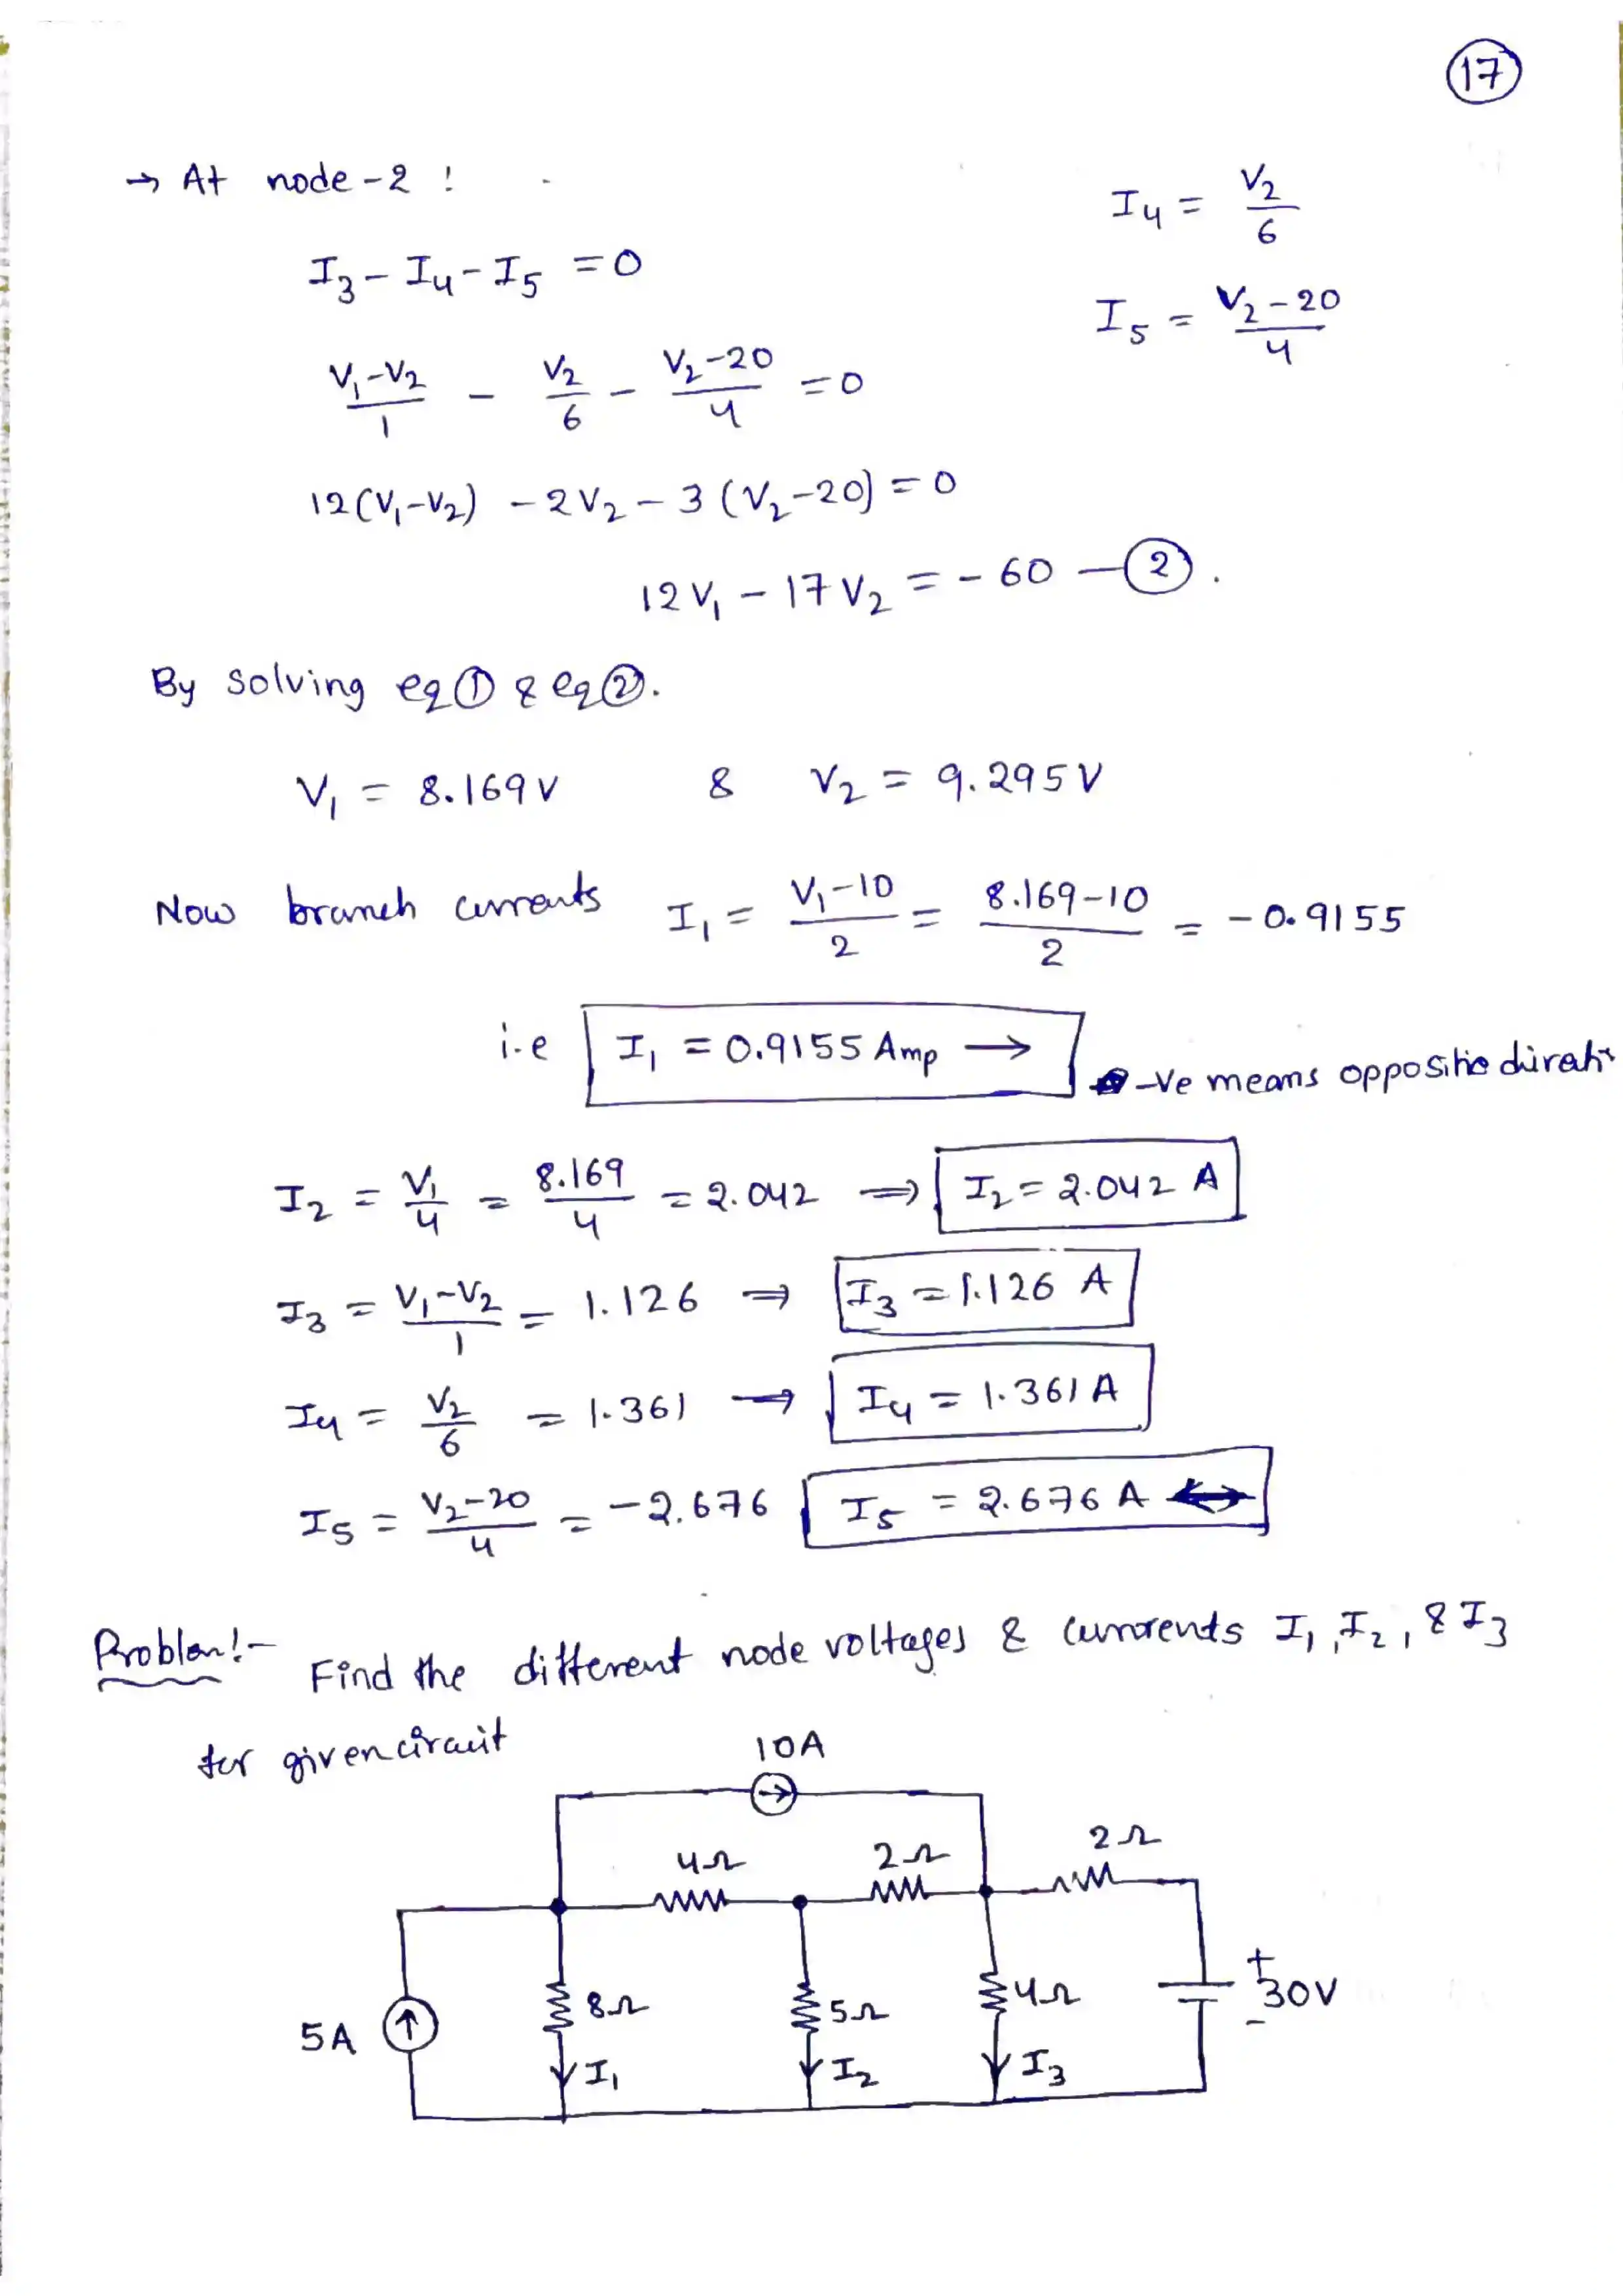 17
→ At node-2 !
I4 = V2/6
I3 - I4 - I5 = 0
I5 = (V2-20)/4
(V1-V2)/1 - V2/6 - (V2-20)/4 = 0
12(V1-V2) - 2V2 - 3(V2-20) = 0
12V1 - 17V2 = -60 — ②.
By solving eq① & eq②.
V1 = 8.169V & V2 = 9.295V
Now branch currents I1 = (V1-10)/2 = (8.169-10)/2 = -0.9155
i.e I1 = 0.9155 Amp → -Ve means opposite
I2 = V1/4 = 8.169/4 = 2.042 ⇒ I2 = 2.042 A
I3 = (V1-V2)/1 = 1.126 ⇒ I3 = 1.126 A
I4 = V2/6 = 1.361 → I4 = 1.361 A
I5 = (V2-20)/4 = -2.676 I5 = 2.676 A ↔
Problem!- Find the different node voltages & currents I1, I2, & I3
for given circuit
10A
4Ω
2Ω
2Ω
5A
8Ω
5Ω
4Ω
+
30V
-
I1
I2
I3